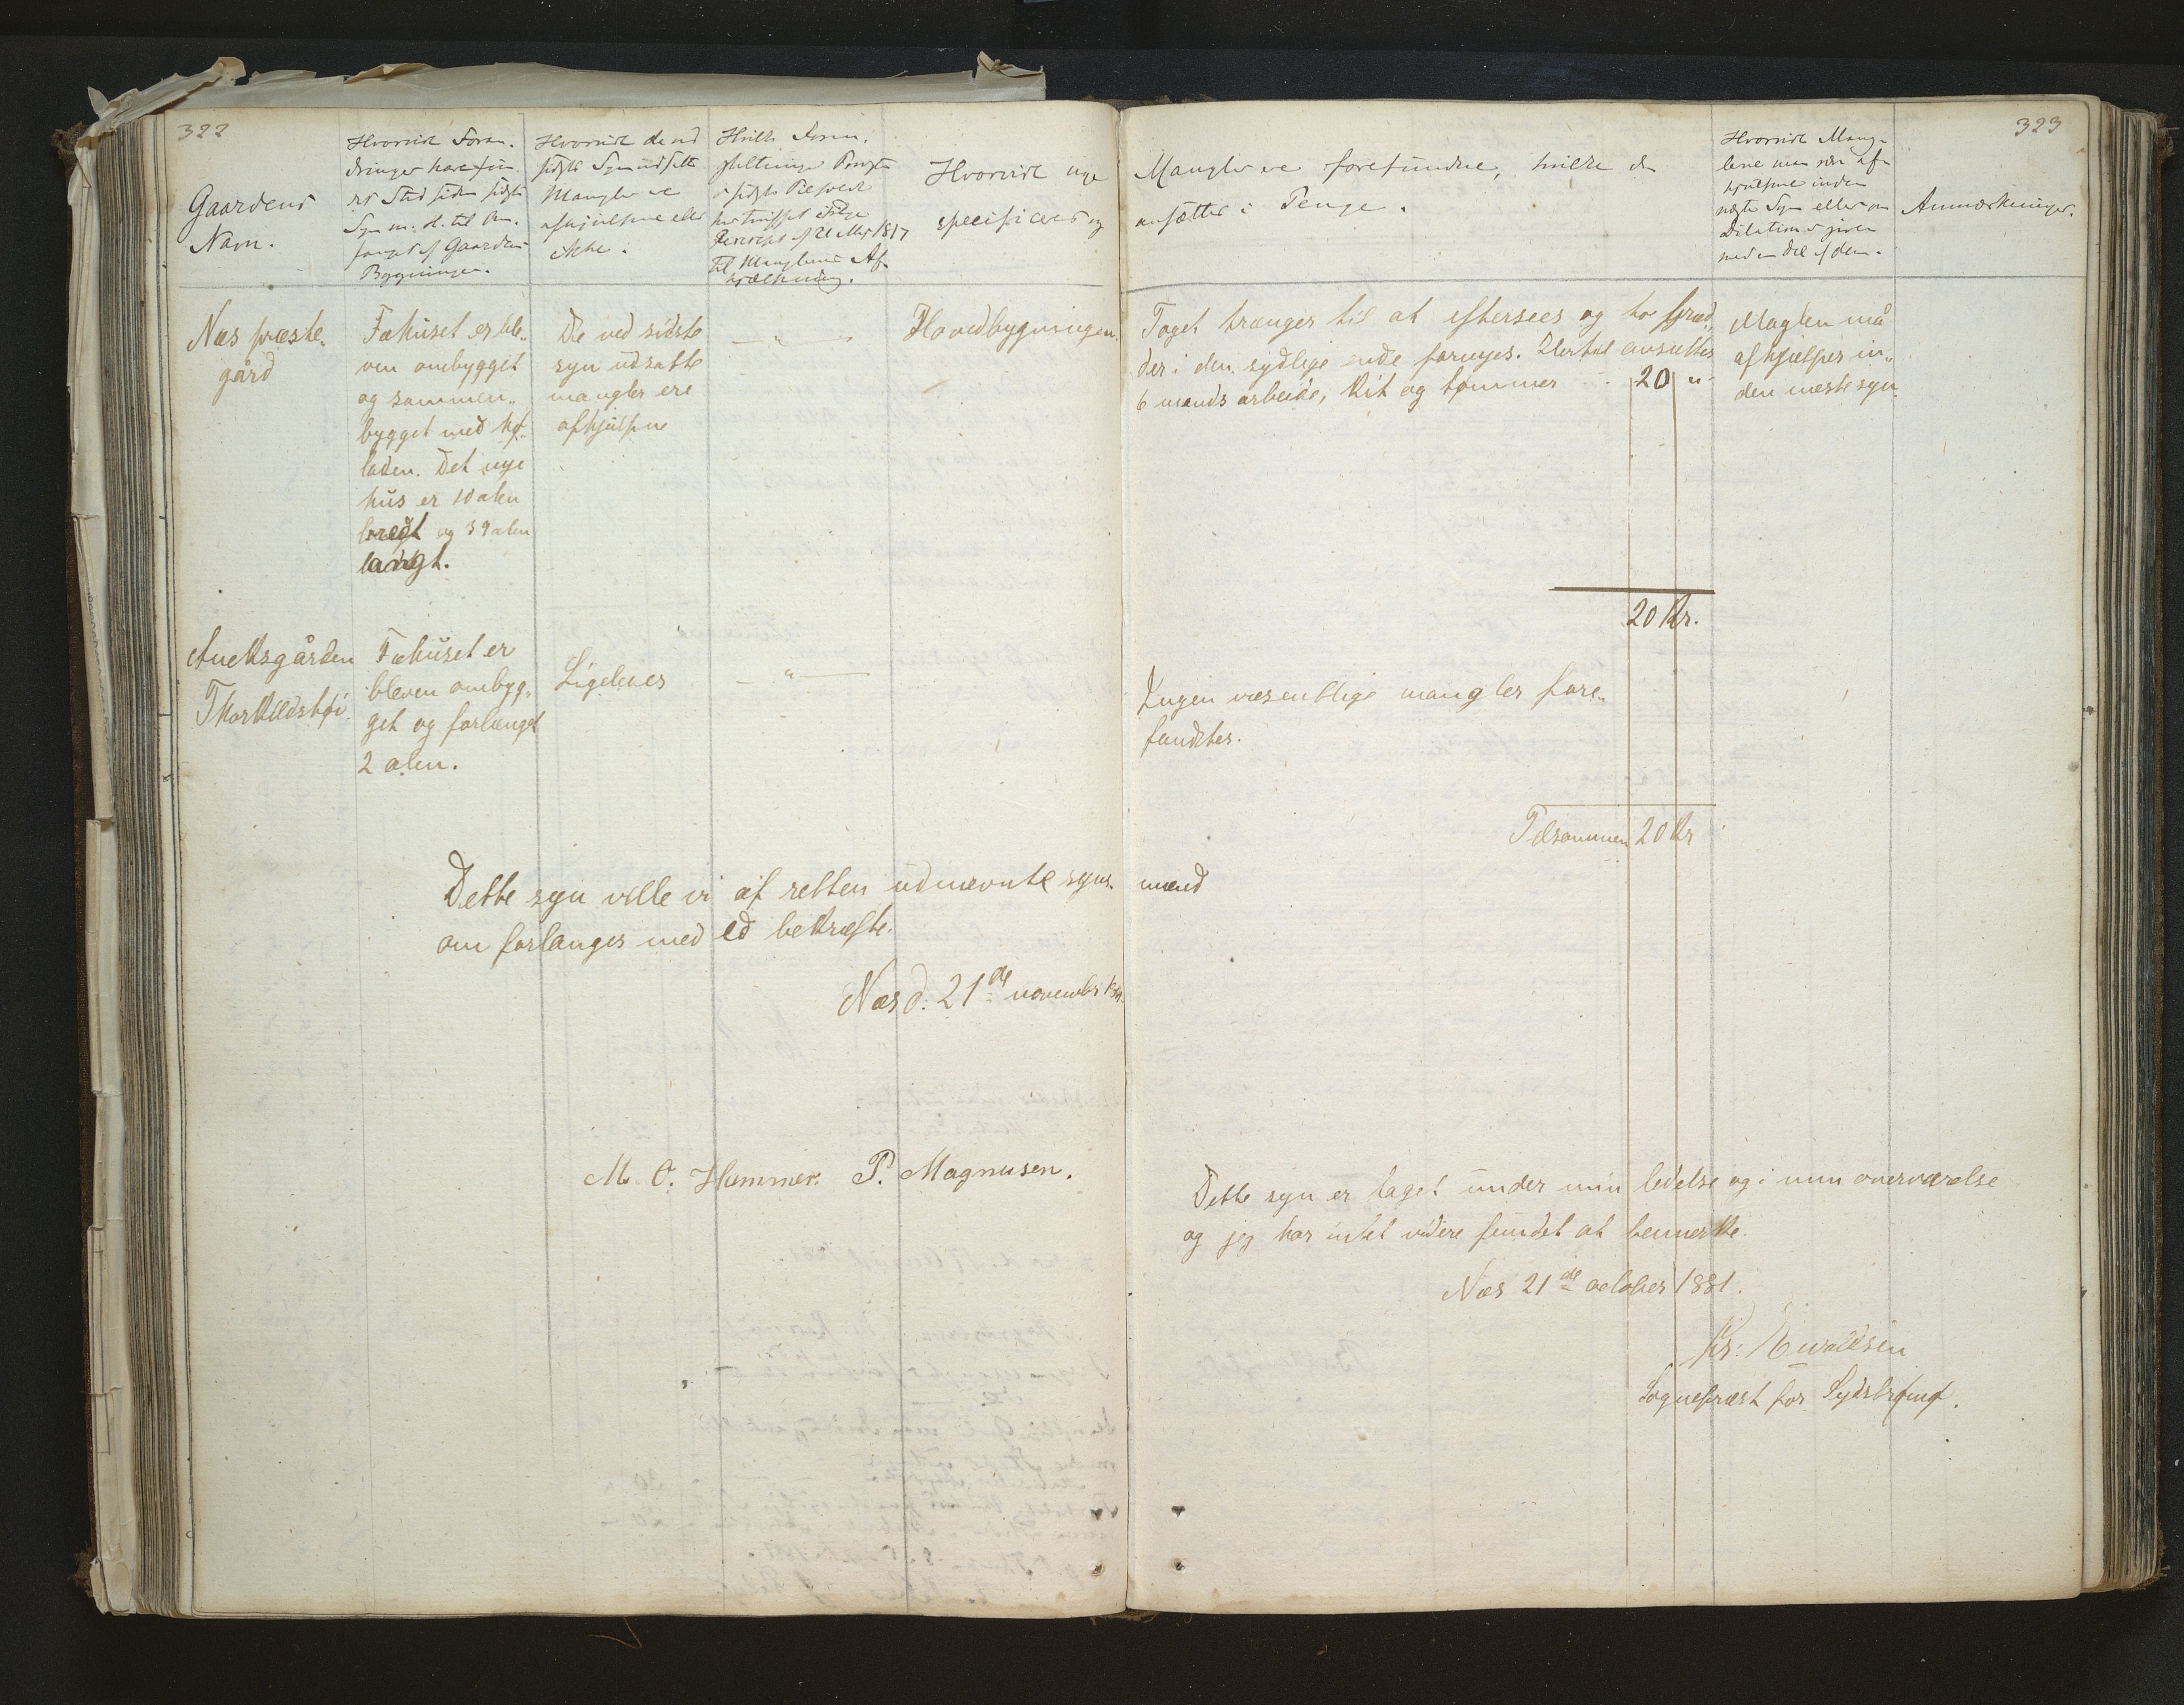 322
Gaardens
Navn.
Hvorvidt Foran-
dringer have fun-
det Sted siden sidste
Syn m. H. til Om-
fanget af Gaardens
Bygninger.
Hvorvidt de ved
sidste Syn udsatte
Mangler ere
afhjulpne eller
ikke.
i sidste
Rescript af 21 Mai 1817
til Manglernes Af-
hjælpning.
Hvorvidt nye
specificeres og
Næs præste-
gård
Fæhuset er ble-
ven ombygget
og sammen-
bygget med hø-
laden. Det nye
hus er 10 alen
bredt og 39 alen
langt.
De ved sidste
syn udsatte
mangler ere
afhjulpne
— " —
Hovedbygningen.
Aneksgården
Thorkildshøi.
Fæhuset er
bleven ombyg-
get og forlænget
2 alen.
Ligeledes
— " —
Dette syn ville vi af retten udnævnte syns-
om forlanges med ed bekræfte.
Næs d. 21de november
M. O. Hammer. P. Magnusen.
323
Mangler ere forefundne, hvilke da
ansættes i Penge.
Hvorvidt Mang-
lerne maa være af-
hjulpne inden
næste Syn eller om
Dilation er given
med en Deel af dem.
Anmærkninger.
Taget trænger til at eftersees og to spræd-
der i den sydlige ende fornyes. Hertil ansættes
6 mands arbeide, kit og tømmer 20 "
Maglen må
afhjælpes in-
den næste syn.
20 Kr.
Ingen væsentlige mangler fore-
fandtes.
Tilsammen 20 Kr
mænd
Dette syn er taget under min ledelse og i min overværelse
og jeg har intet videre fundet at bemærke.
Næs 21de october 1881.
Kr: Ewaldsen
Sognepræst for Syderø.